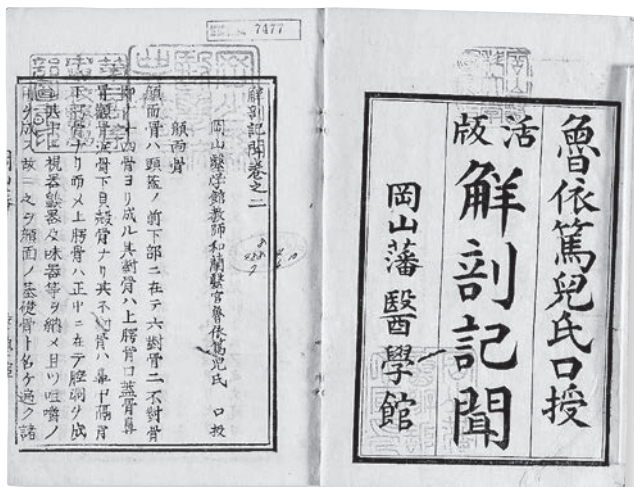 魯依篤兒氏口授
活版
解剖記聞
岡山藩醫學館
7477
解剖記聞卷之二
岡山醫学館教師和蘭醫官魯依篤兒氏 口授
顔面骨
顔面骨ハ頭蓋ノ前下部ニ在テ六對骨二不對骨
十四骨ヨリ成ル其對骨ハ上腭骨口蓋骨鼻
骨下貝殼骨ナリ其不對骨ハ鼻中隔骨
下腭骨ナリ而メ上腭骨ハ正中ニ在テ腔洞ヲ成
視器聽器及味器等ヲ納メ且ツ咀嚼ノ
成ス故ニ之ヲ顔面ノ基礎骨ト名ケ遍ク諸